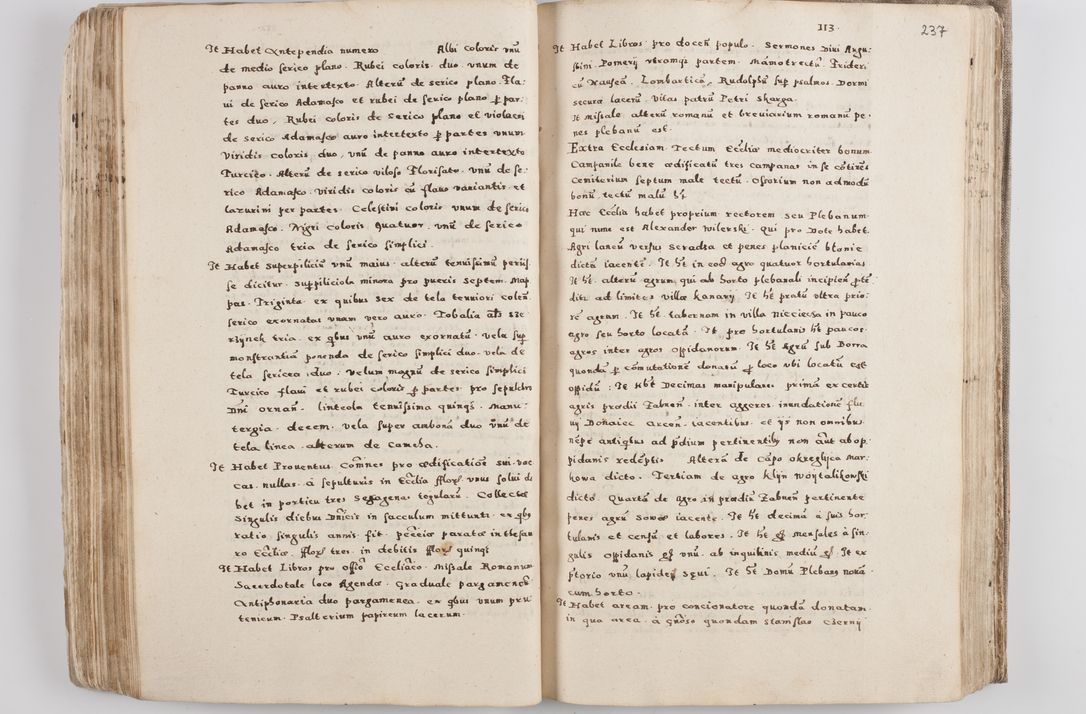 It Habet Antependia numero Albi coloris vnū
de medio serico plano. Rubei coloris duo vnum de
panno auro intertexto. Alterū de serico plano. Fla-
ui de serico Adamasco et rubei de serico plano p par-
tes duo. Rubei coloris de serico plano et violacei
de serico Adamasco auro intertexto p partes vnum
Viridis coloris duo, vnū de panno auro intertexto
Turcico. Alterū de serico viloso Florisato. vnū de se-
rico Adamasco. viridis coloris cū flauo variantis et
lazurini per partes. Celestini coloris vnum de serico
Adamasco. Nigri coloris quatuor, vnū de serico
Adamasco tria de serico simplici.
It Habet superpiliciū vnū maius alterū tenuissimū
se dicitur. suppiliciola minora pro pueris septem. Map
pas Triginta ex quibus sex de tela tenuiori
serico exornatas vnam vero auro. Tobalia
tria ex qbus vnū auro exornatū. vela sup
monstrantiā ponenda de serico simplici duo. vela de
tela sericea duo. Velum magnū de serico simplici
Turcico flaui et rubei coloris p partes pro sepulchro
Dni ornan. linteola tenuissima quinqs. Manu-
tergia decem. vela super ambonā duo vnū de
tela linea alterum de Camcha.
It Habet Prouentus Comnes pro ædificatiōe sui. voc
cas nullas. à sepulturis in Ecclia fflor vnus solui de
bet in porticu tres Segagenas tegularū. Collectæ
Singulis diebus Dnicis in sacculum mittunti. ex qbs
ratio singulis annis fit. pecciæ paratæ in thesau
ro Eccliæ fflor tres. in debitis fflor quinqs
It Habet Libros pro offio Eccliaco. Missale Romanum
Sacerdotale loco Agendæ. Graduale pargameneū
Antiphonaria duo pargamenea. ex qbus vnum pru
tenicum. Psalterium papireum lacerum.
113
237
It Habet Libros pro docen populo. Sermones Diui Augu-
stini. Pomerij vtramqs partem. Mamotrectū Frideri
cū Nauseā. Lombartica, Rudolphū sup psalmos. Dormi
secura lacerū, vitas patrū Petri Skarga.
It missale alterū romanū et breuiarium romanū pe-
nes plebanū est.
Extra Ecclesiam. Tectum Eccliæ mediocriter bonum
Campanile bene ædificatū tres campanas in se cōtinēs
Cemiterium septum male tectū. Ossorium non admodū
bonū, tectū malū ht
Hæc Ecclia habet proprium rectorem seu Plebanum
qui nunc est Alexander wilerski. Qui pro Dote habet
Agri laneū versus Seradza et penes planiciē błonie
dictā iacentē. It ht in eod agro quatuor hortularias
It ht alterū agrum, qui ab horto plebanali incipien ptē
ditr ad limites villæ kanary. It ht pratū vltra prio-
rē agrum. It ht tabernam in villa Niecieza in pauco
agro seu horto locatā. It pro hortulanis ht paucos
agros inter agros oppidanorum. It ht Agrū sub Borra
quondā p cōmutationē donatū p loco vbi locatū est
oppidū. It Hbt Decimas manipulares primā ex certis
agris prædii Zabnen inter aggeres inundationē flu
uij Donaiec arcen iacentibus. et ijs non omnibus
nēpe antiqtus ad pdium pertinentibs non aut ab op-
pidanis redēptis. Alterā de Cāpo okreglica Mar-
kowa dicto. Tertiam de agro klijn Woijtalikowski
dicto. Quartā de agro in prædiū Zabnen pertinente
penes agrū Sowæ iacente. It ht decimā à suis hor-
tulanis et censū et labores. It ht mensales à sin-
gulis oppidanis vnū. ab inquilinis mediū It ex
ptorio vnū lapidē Seui. It ht Domū Plebanō nouā
cum horto.
It Habet aream pro concionatore quondā donatam
in qua area à Gnoso quondam Stanislao Czernij